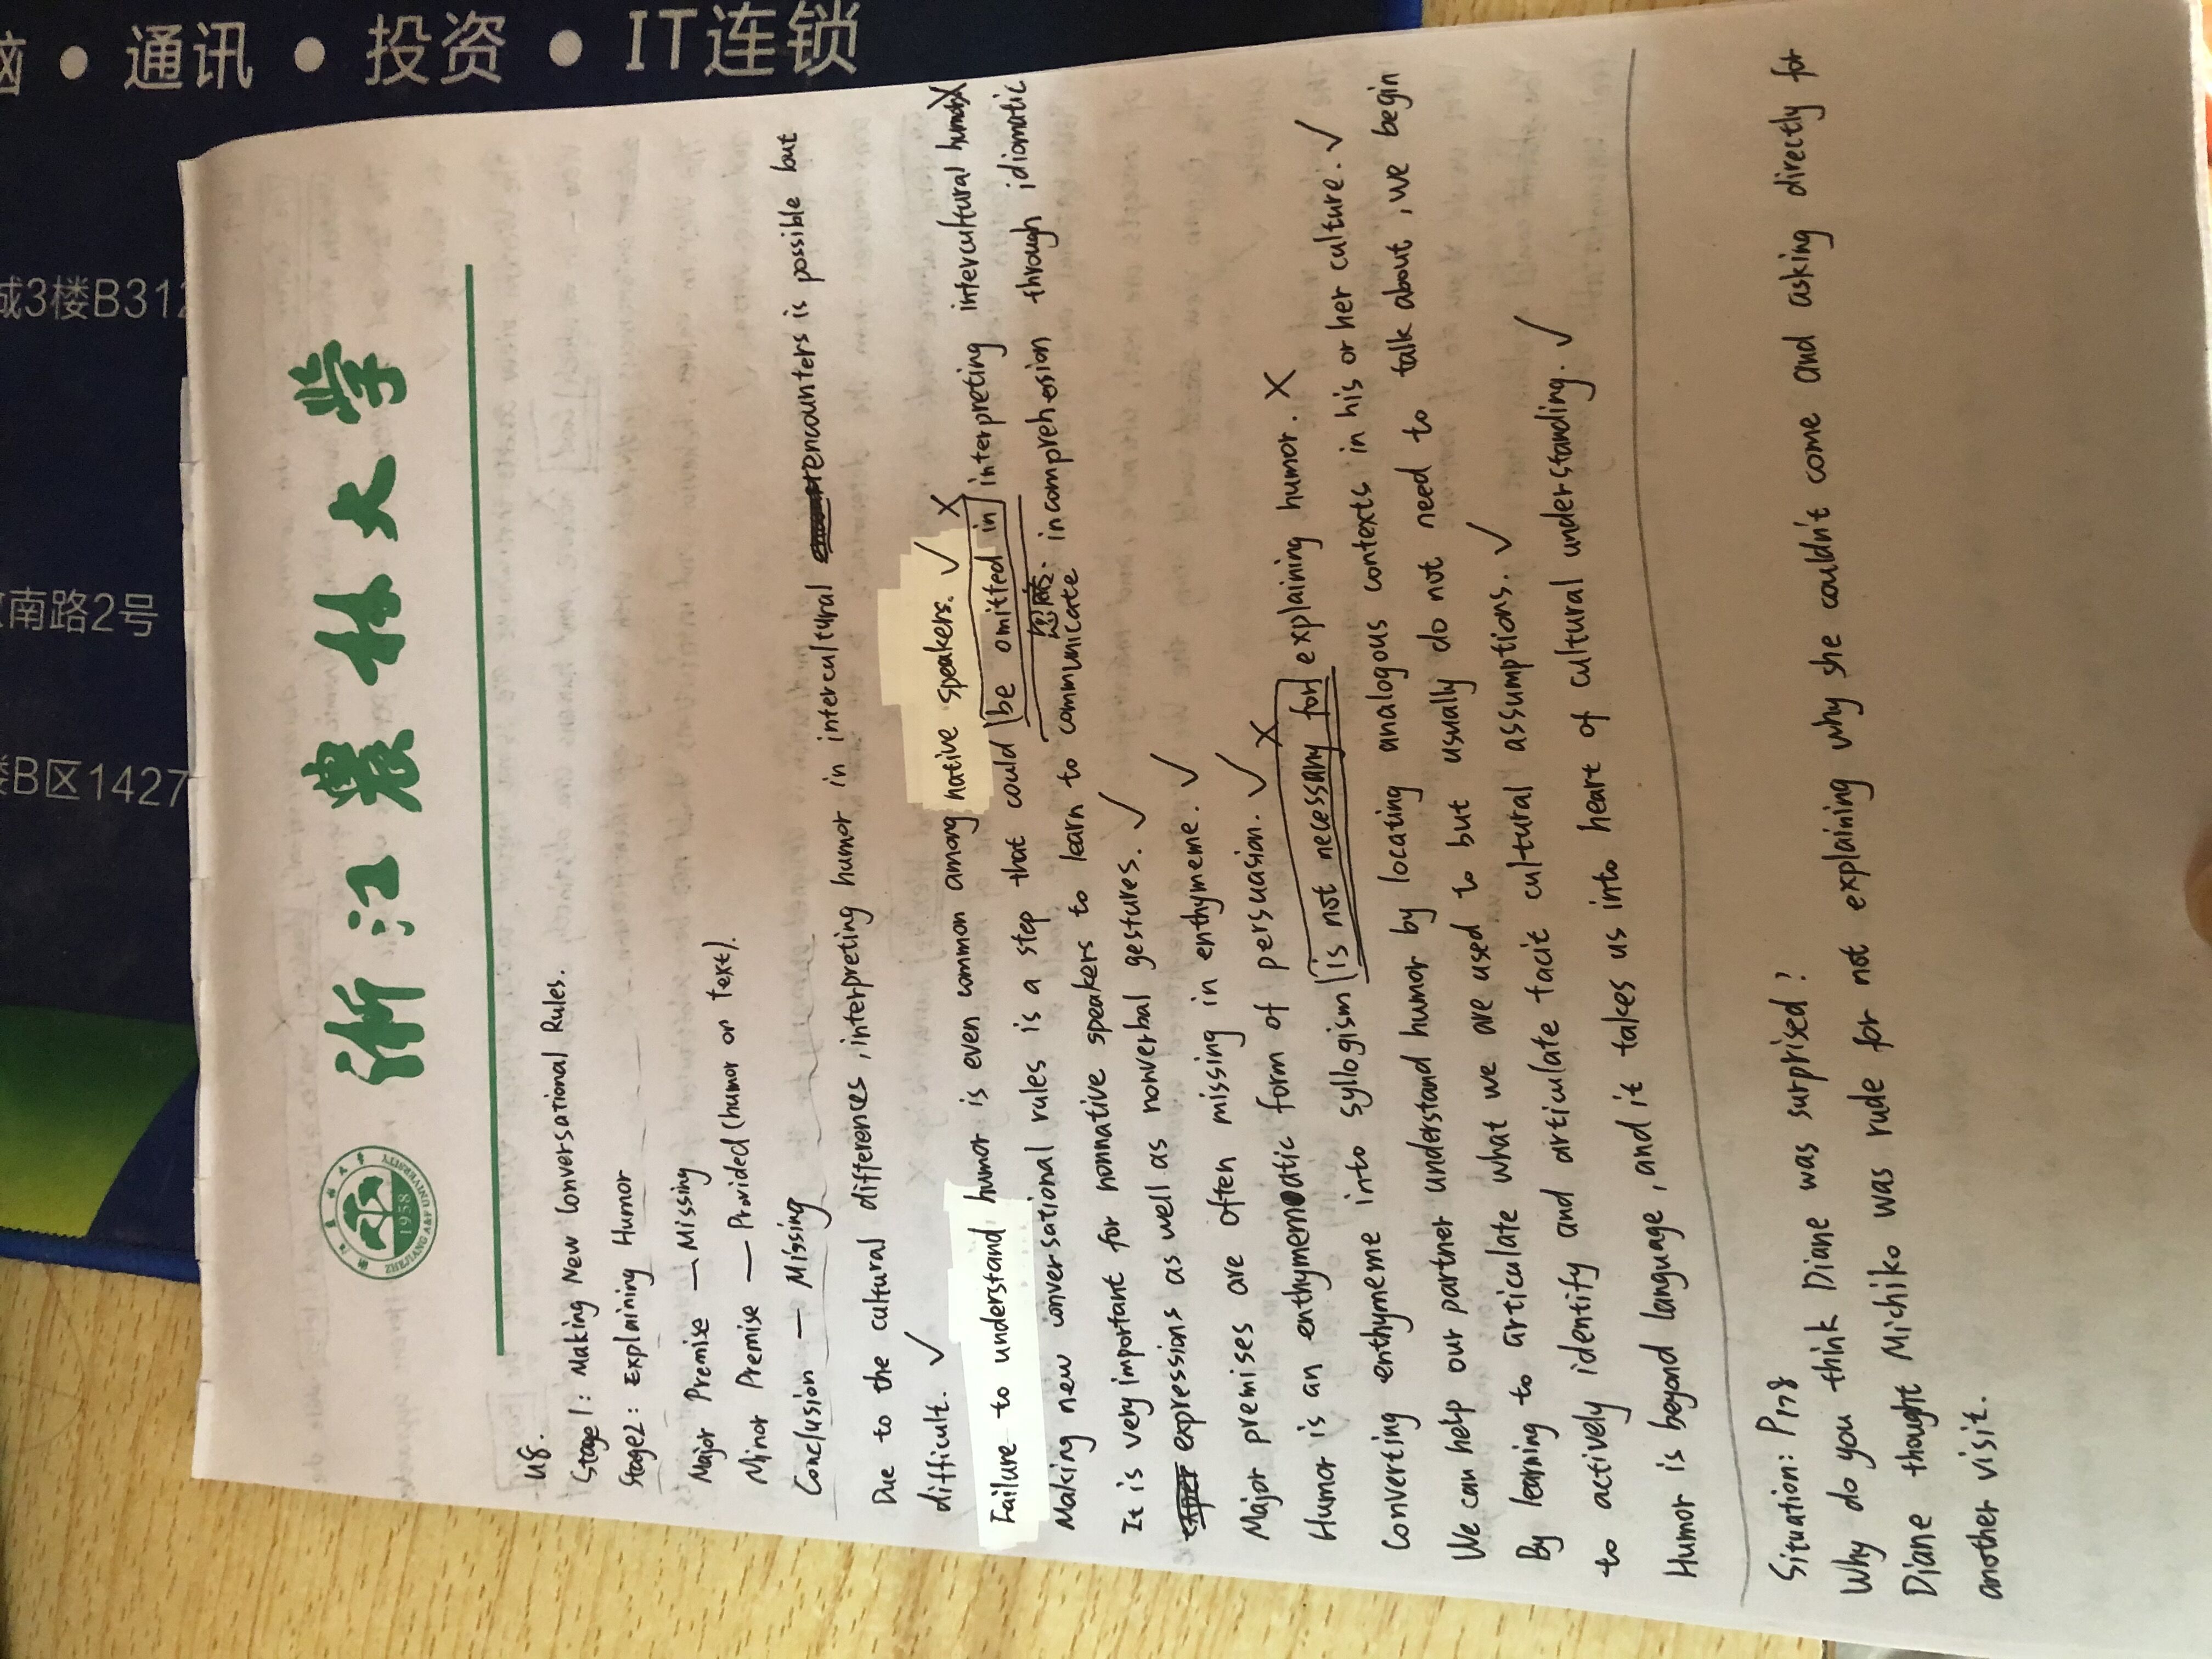 脑 • 通讯 • 投资 • IT连锁
城3楼B312
南路2号
楼B区1427
浙江农林大学
1958
ZHEJIANG A&F UNIVERSITY
U8.
Stage 1: Making New Conversational Rules.
Stage2: Explaining Humor
Major Premise — Missing
Minor Premise — Provided (humor or text).
Conclusion — Missing
Due to the cultural differences, interpreting humor in intercultural encounters is possible but
difficult. ✓
Failure to understand humor is even common among native speakers. ✓
Making new conversational rules is a step that could be omitted in interpreting intercultural humor X
忽略.
It is very important for nonnative speakers to learn to communicate incomprehension through idiomatic
expressions as well as nonverbal gestures. ✓
Major premises are often missing in enthymeme. ✓
Humor is an enthymematic form of persuasion. ✓
Converting enthymeme into syllogism is not necessary for explaining humor. X
We can help our partner understand humor by locating analogous contexts in his or her culture. ✓
By learning to articulate what we are used to but usually do not need to talk about, we begin
to actively identify and articulate tacit cultural assumptions. ✓
Humor is beyond language, and it takes us into heart of cultural understanding. ✓
Situation: P178
Why do you think Diane was surprised?
Diane thought Michiko was rude for not explaining why she couldn't come and asking directly for
another visit.